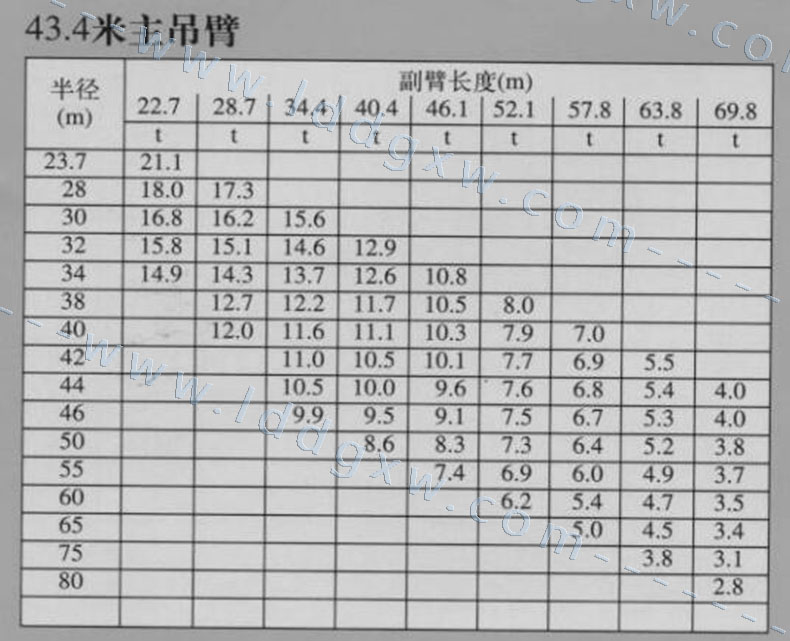 43.4米主吊臂
半径 副臂长度(m)
(m) 22.7 28.7 34.4 40.4 46.1 52.1 57.8 63.8 69.8
t t t t t t t t t
23.7 21.1
28 18.0 17.3
30 16.8 16.2 15.6
32 15.8 15.1 14.6 12.9
34 14.9 14.3 13.7 12.6 10.8
38 12.7 12.2 11.7 10.5 8.0
40 12.0 11.6 11.1 10.3 7.9 7.0
42 11.0 10.5 10.1 7.7 6.9 5.5
44 10.5 10.0 9.6 7.6 6.8 5.4 4.0
46 9.9 9.5 9.1 7.5 6.7 5.3 4.0
50 8.6 8.3 7.3 6.4 5.2 3.8
55 7.4 6.9 6.0 4.9 3.7
60 6.2 5.4 4.7 3.5
65 5.0 4.5 3.4
75 3.8 3.1
80 2.8
www.lddgxw.com
www.lddgxw.com
xw.co